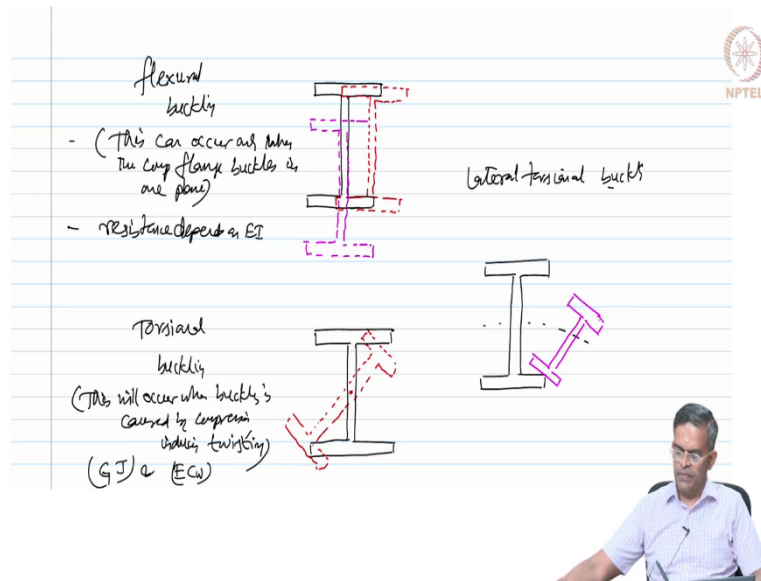 flexural
buckling
- (This can occur only when
the comp flange buckles in
one plane)
- resistance depend on EI
lateral torsional buckli
Torsional
buckling
(This will occur when buckling is
caused by compression
inducing twisting)
(GJ) & (ECw)
NPTEL